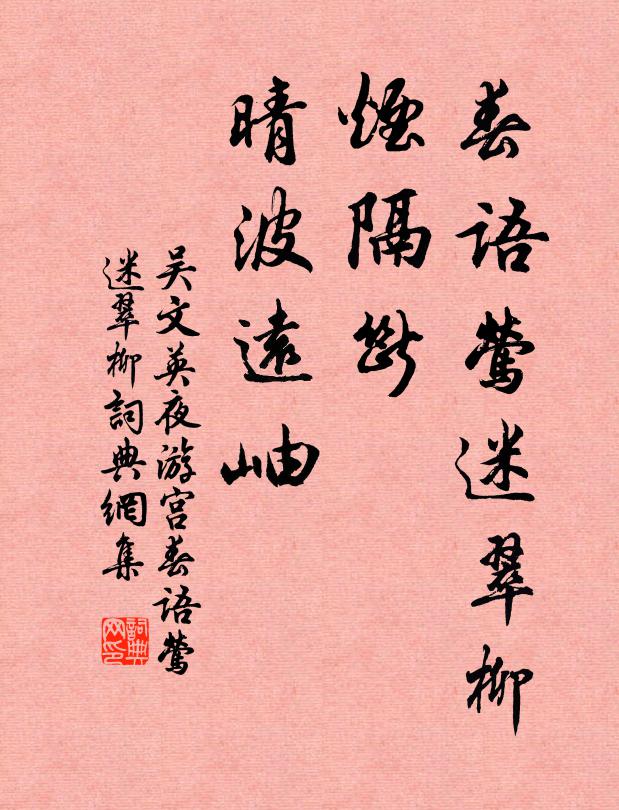 春语莺迷翠柳
烟隔断
晴波遠岫
吴文英夜游宫春语莺
迷翠柳詞典網集
詞典网印